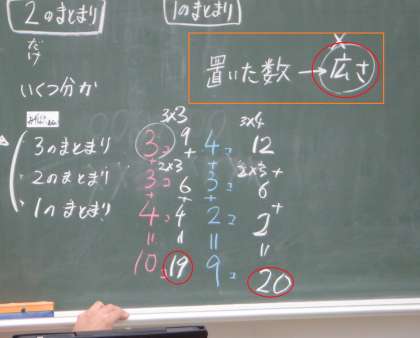 2のまとまり
1のまとまり
だけ
いくつ分か
置いた数→広さ
3×3
3×4
3のまとまり 3 = 9 4 = 12
+ + +
2×3 2×3
2のまとまり 3 = 6 3 = 6
+ + +
1のまとまり 4 = 4 2 = 2
= = = =
10 = 19 9 = 20